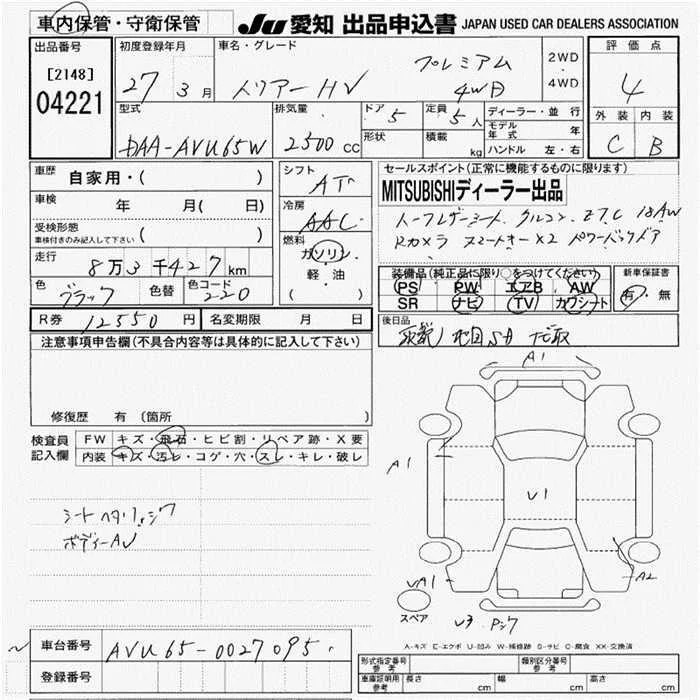 車内保管・守衛保管
JU 愛知 出品申込書 JAPAN USED CAR DEALERS ASSOCIATION
出品番号
[2148]
04221
初度登録年月
27 3月
車名・グレード
ハリアーHV
プレミアム
4WD
2WD
・
4WD
評価点
4
外装 内装
C B
型式
DAA-AVU65W
排気量
2500 CC
ドア 5
形状
定員 5 人
積載 kg
ディーラー・並行
モデル年式 年
ハンドル 左・右
車歴 自家用・( )
車検 年 月( 日)
受検形態
車検付きのみ記入して下さい ( )
走行 8万3千427km
色 ブラック 色替 色コード 220
シフト
AT
冷房
AAC
燃料
ガソリン
軽・油
( )
セールスポイント(正常に機能するものに限ります)
MITSUBISHIディーラー出品
ハーフレザーシート クルコン ETC 18AW
Rカメラ スマートキー×2 パワーバックドア
装備品(純正品に限り○をつけてください)
PS PW エアB AW
SR ナビ TV カワシート
新車保証書
有・無
R券 12550円 名変期限 月 日
後日品
注意事項申告欄(不具合内容等は具体的に記入して下さい)
修復歴 有(箇所
検査員
記入欄
FW キズ・飛石・ヒビ割・リペア跡・X要
内装 キズ・汚レ・コゲ・穴・スレ・キレ・破レ
シートヘタリ、シワ
ボディーAU
A1
A1
V1
UA1
A2
スペア
A-キズ E-エクボ U-凹み W-補修跡 S-サビ C-腐食 XX-交換済
車台番号 AVU65-0027095
登録番号
形式指定番号
参考
類別区分番号
参考
車庫証明用
参考
長さ cm 幅 cm 高さ cm